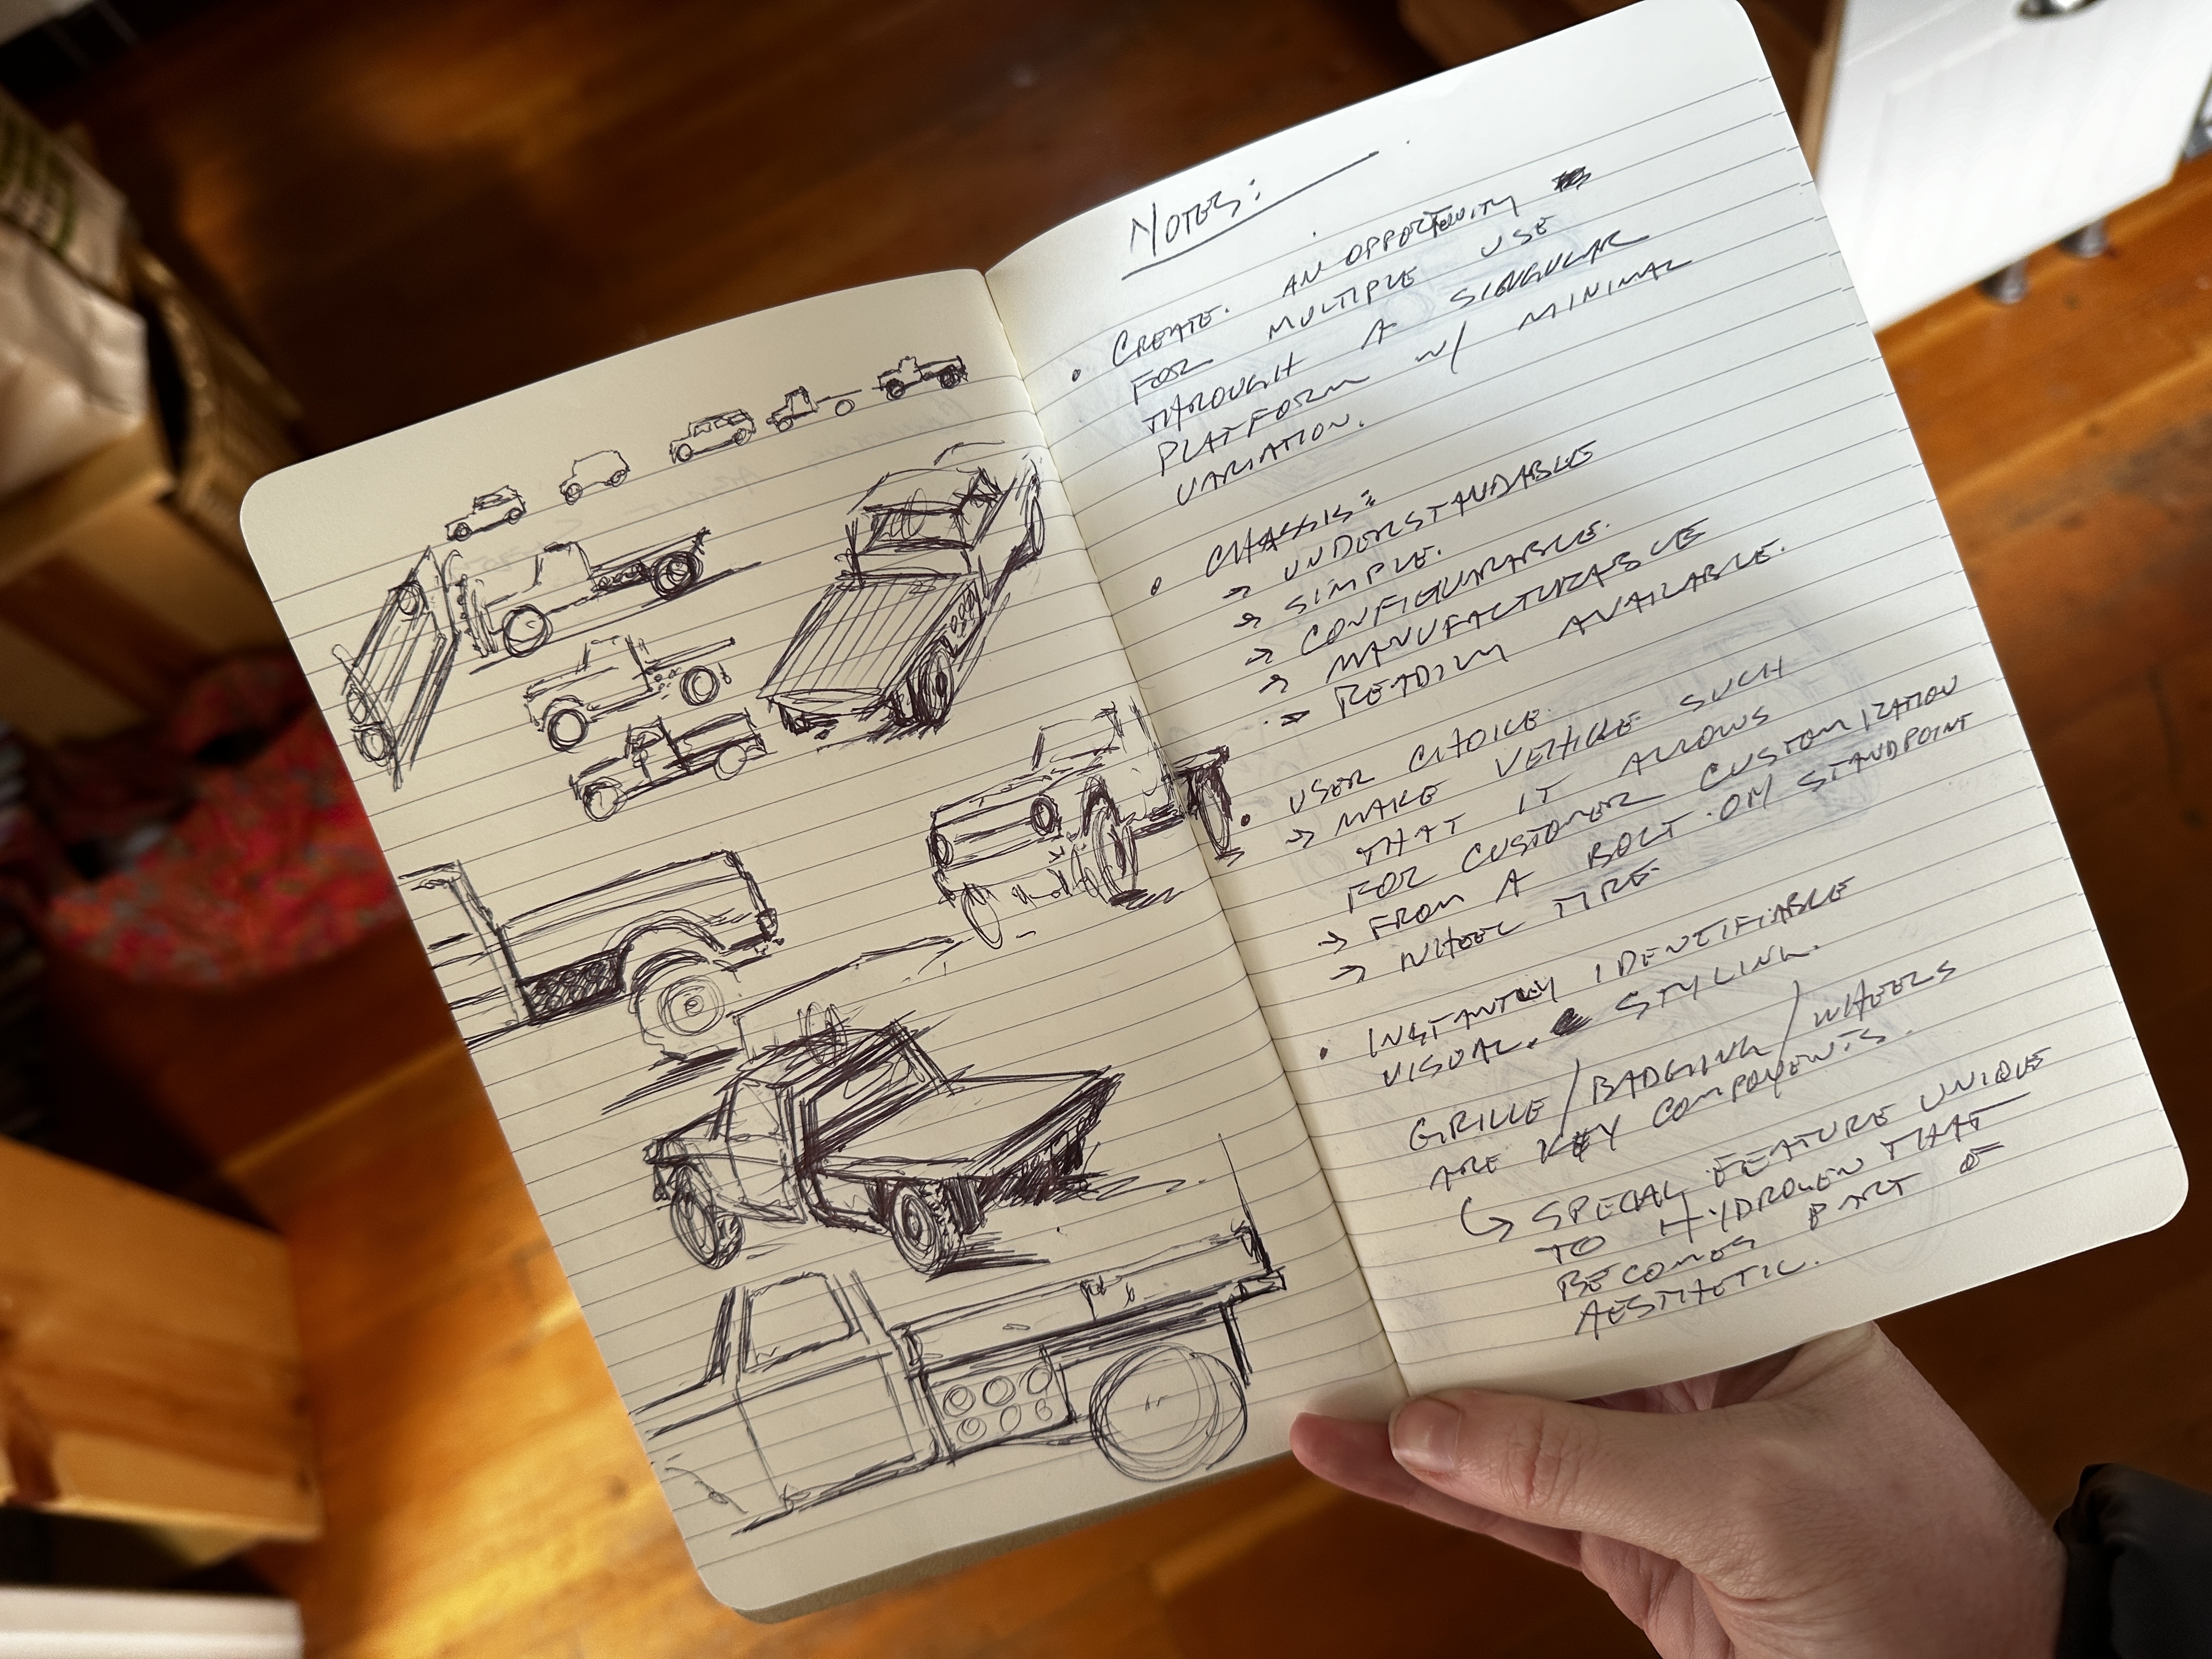 NOTES:
• CREATE. AN OPPORTUNITY
FOR MULTIPLE USE
THROUGH A SINGULAR
PLATFORM W/ MINIMAL
VARIATION.
• CHASSIS:
→ UNDERSTANDABLE
→ SIMPLE.
→ CONFIGURABLE.
→ MANUFACTURABLE
→ READILY AVAILABLE.
• USER CHOICE.
→ MAKE VEHICLE SUCH
THAT IT ALLOWS
FOR CUSTOMER CUSTOMIZATION
→ FROM A BOLT ON STANDPOINT
→ WHEEL TIRE.
• INSTANTLY IDENTIFIABLE
VISUAL. STYLING.
GRILLE/BADGING/WHEELS
ARE KEY COMPONENTS.
↳ SPECIAL FEATURE UNIQUE
TO HYDROGEN THAT
BECOMES PART OF
AESTHETIC.